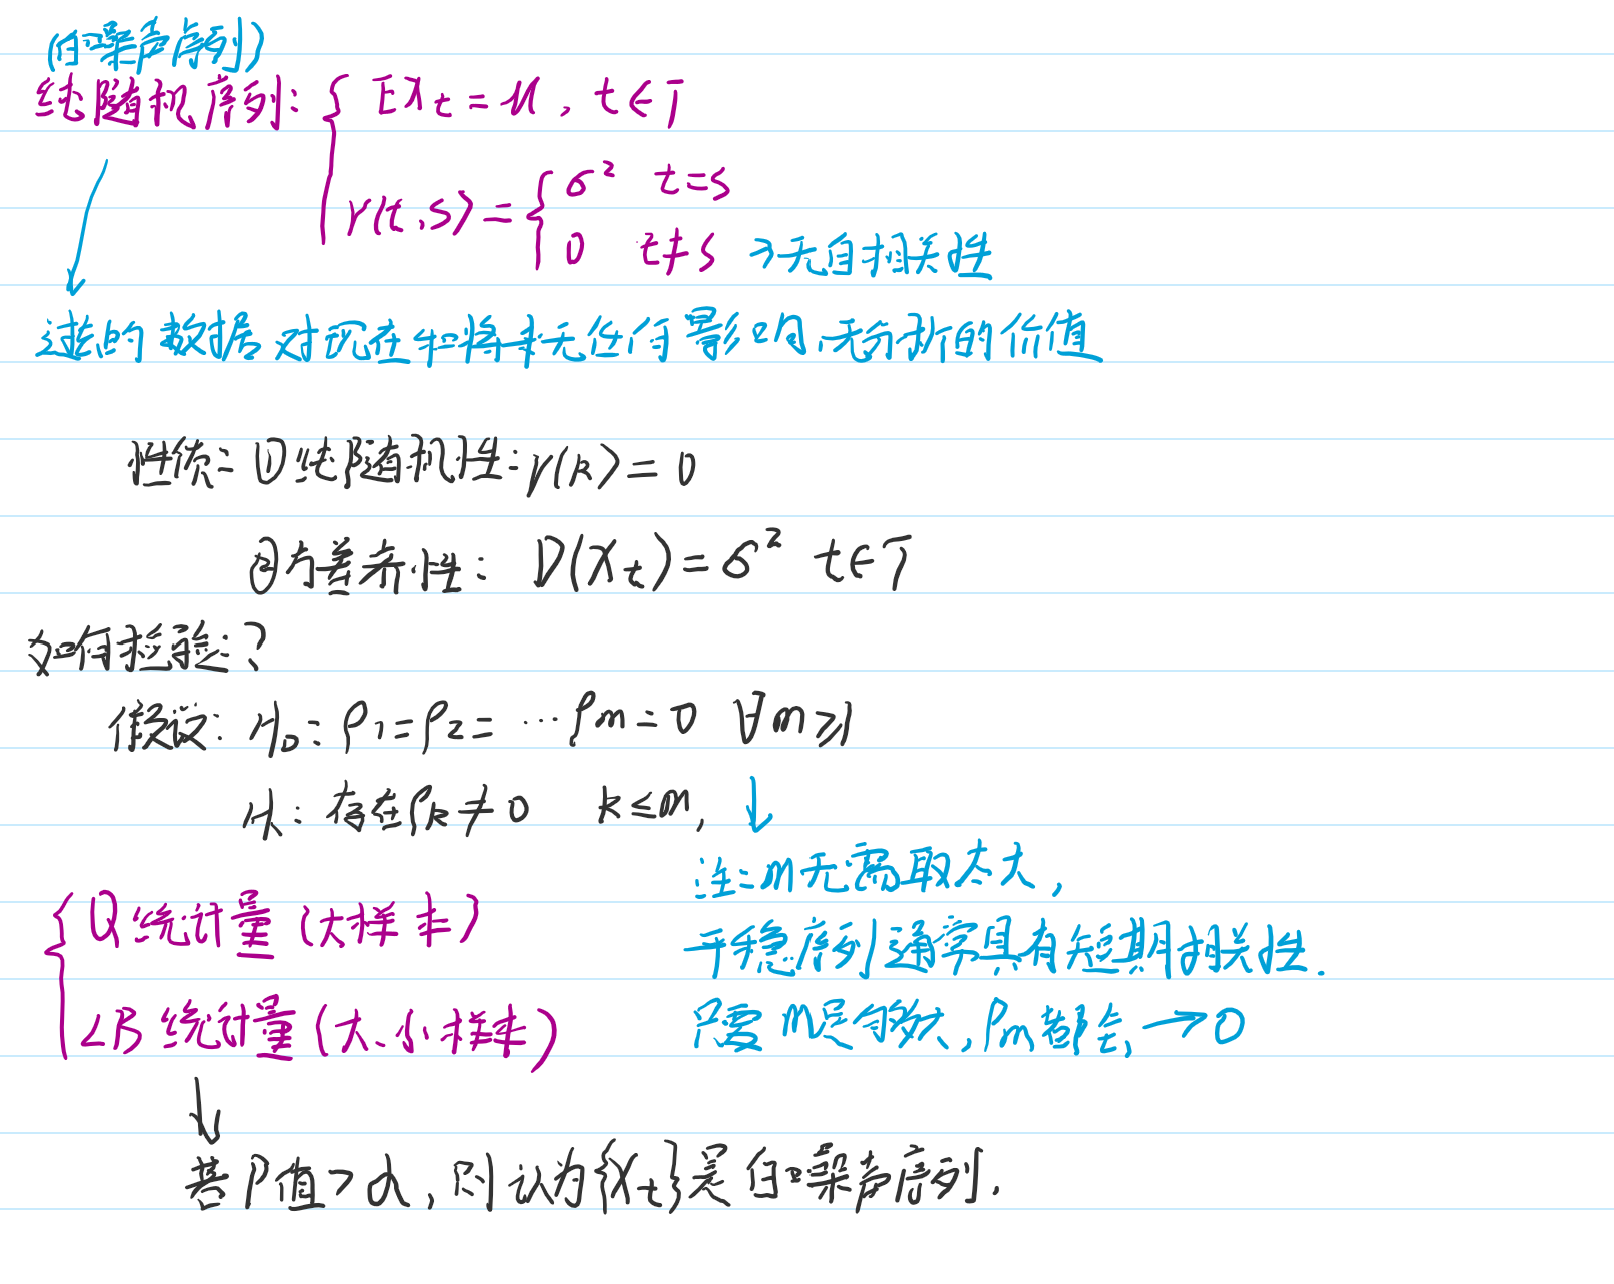 (白噪声序列)
纯随机序列: { EX_t = μ, t∈T
γ(t,s) = { σ² t=s
0 t≠s → 无自相关性
过去的数据对现在和将来无任何影响,无分析的价值
性质: ①纯随机性: γ(k) = 0
②方差齐性: D(X_t) = σ² t∈T
如何检验?
假设: H₀: ρ₁=ρ₂= …ρm=0 ∀m≥1
H₁: 存在ρk≠0 k≤m,
注: m无需取太大,
平稳序列通常具有短期相关性.
只要m足够大, ρm都会→0
{ Q统计量(大样本)
LB统计量(大、小样本)
↓
若P值>α, 则认为{X_t}是白噪声序列.